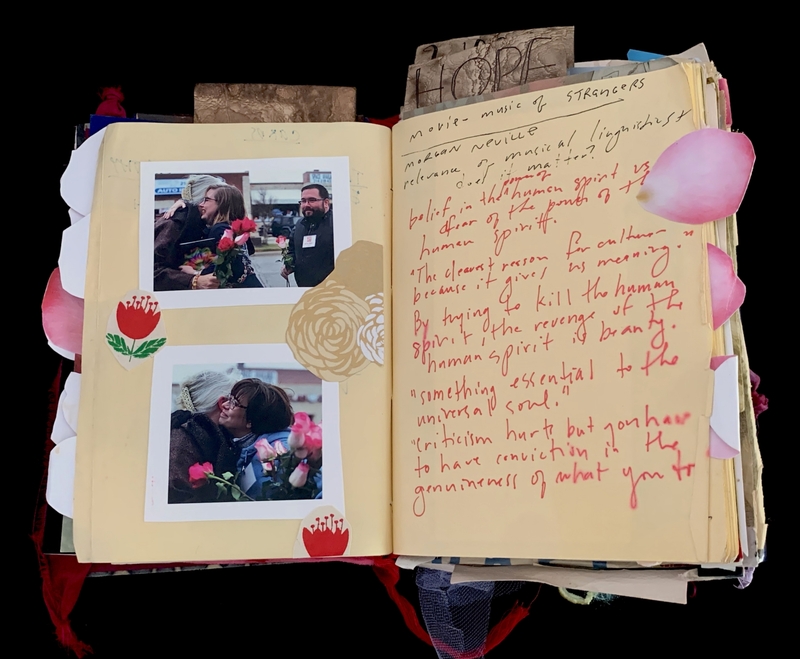 HOPE
movie - music of STRANGERS
MORGAN NEVILLE
relevance of musical linguist
does it matter?
belief in the power of human spirit vs
fear of the power of th
human spirit.
"The clearest reason for culture
because it gives us meaning."
By trying to kill the human
spirit, the revenge of the
human spirit is beauty.
"something essential to the
universal soul."
"criticism hurts but you have
to have conviction in the
genuineness of what you